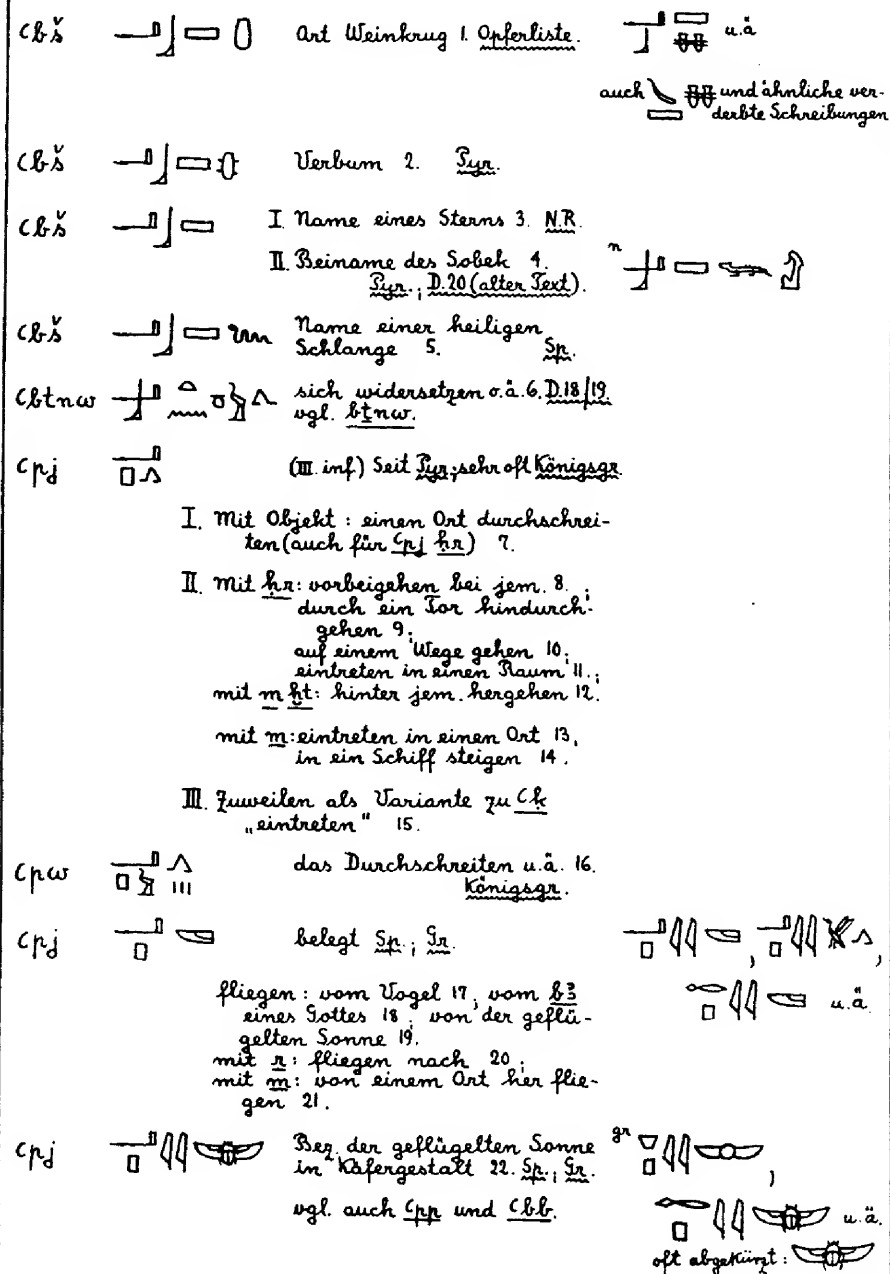 ꜥbš Art Weinkrug 1. Opferliste. u.ä
auch und ähnliche ver-
derbte Schreibungen
ꜥbš Verbum 2. Pyr.
ꜥbš I. Name eines Sterns 3. N.R.
II. Beiname des Sobek 4. n
Pyr.; D.20 (alter Text).
ꜥbš Name einer heiligen
Schlange 5. Sp.
ꜥbtnw sich widersetzen o.ä. 6. D.18/19.
vgl. bṯnw.
ꜥpj (III. inf) Seit Pyr; sehr oft Königsgr.
I. Mit Objekt: einen Ort durchschrei-
ten (auch für ꜥpj ḥr) 7.
II. Mit ḥr: vorbeigehen bei jem. 8.;
durch ein Tor hindurch-
gehen 9;
auf einem Wege gehen 10;
eintreten in einen Raum 11.;
mit m ḫt: hinter jem. hergehen 12.
mit m: eintreten in einen Ort 13,
in ein Schiff steigen 14.
III. Zuweilen als Variante zu ꜥḳ
„eintreten“ 15.
ꜥpw das Durchschreiten u.ä. 16.
Königsgr.
ꜥpj belegt Sp.; Gr. , ,
fliegen: vom Vogel 17, vom bꜣ u.ä.
eines Gottes 18, von der geflü-
gelten Sonne 19.
mit r: fliegen nach 20;
mit m: von einem Ort her flie-
gen 21.
ꜥpj Bez. der geflügelten Sonne gr ,
in Käfergestalt 22. Sp.; Gr.
vgl. auch ꜥpp und ꜥbb. u.ä.
oft abgekürzt: